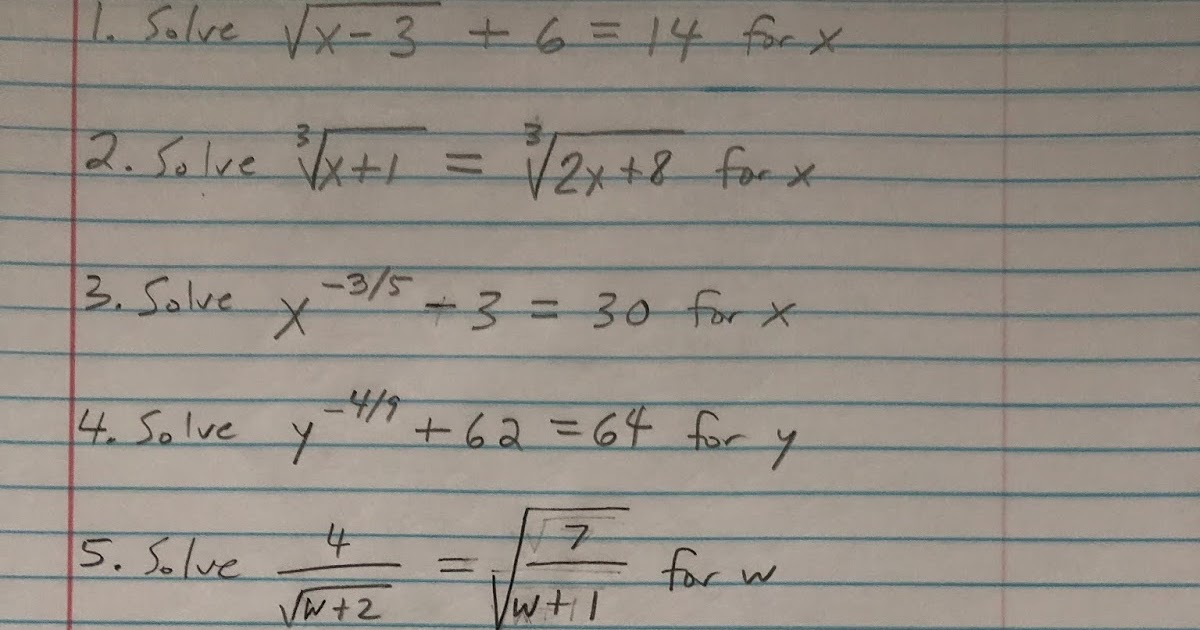 1. Solve √(x-3) + 6 = 14 for x
2. Solve ³√(x+1) = ³√(2x+8) for x
3. Solve x^(-3/5) - 3 = 30 for x
4. Solve y^(-4/9) + 62 = 64 for y
5. Solve 4/√(w+2) = √(7/(w+1)) for w